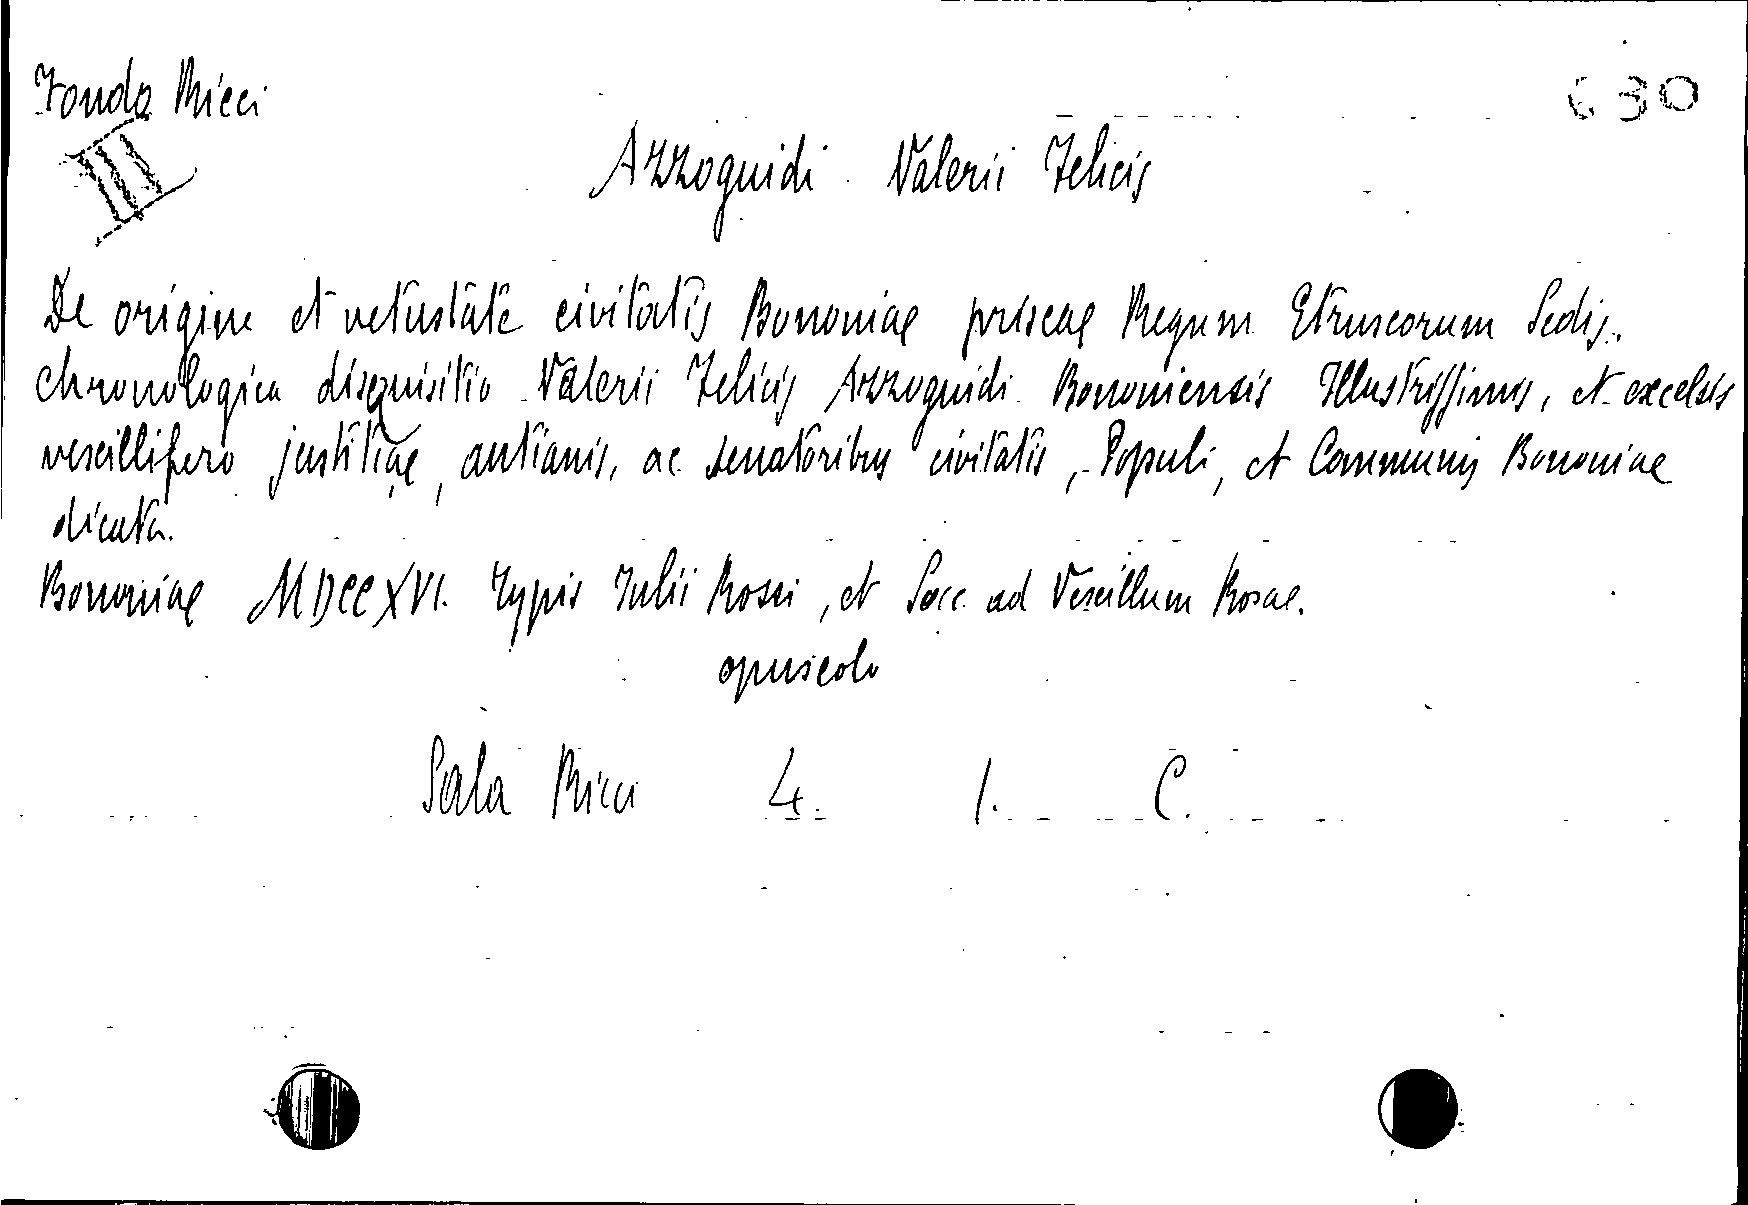 Fondo Ricci
630
III
Azzoguidi Valerii Felicis
De origine et vetustate civitatis Bononiae priscae Regum Etruscorum Sedis.
chronologica disquisitio Valerii Felicis Azzoguidi Bononiensis Illustrissimis, et excelsis
vescillifero justitiae, antianis, ac senatoribus civitatis, Populi, et Communis Bononiae
dicata.
Bononiae MDCCXVI. Typis Iulii Rossi, et Socc. ad Vescillum Rosae.
opuscolo
Sala Ricci 4. 1. C.